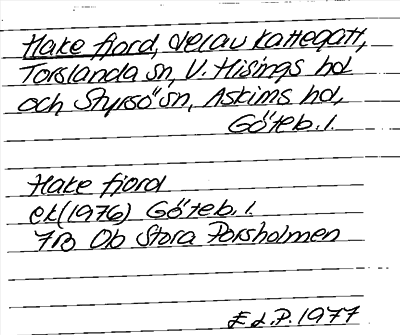 Hake fjord, del av Kattegatt,
Torslanda sn, V. Hisings hd
och Styrsö sn, Askims hd,
Göteb. l.
Hake fjord
ek (1976) Göteb. l.
7B 0b Stora Porsholmen
E.L.P. 1977